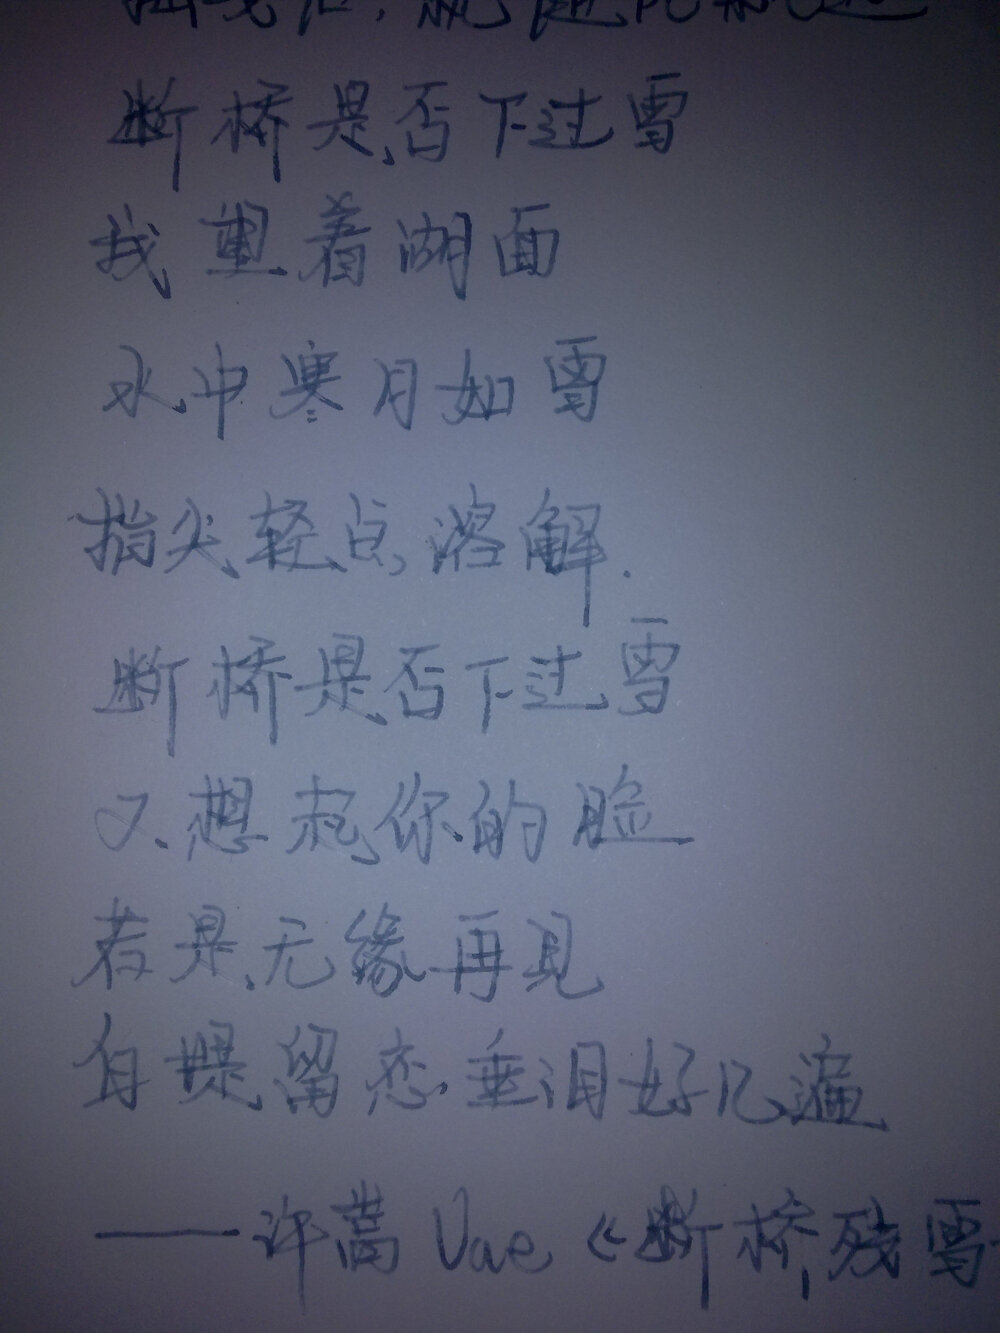 断桥是否下过雪
我望着湖面
水中寒月如雪
指尖轻点溶解.
断桥是否下过雪
又想起你的脸
若是无缘再见
白堤留恋垂泪好几遍
——许嵩Vae《断桥残雪